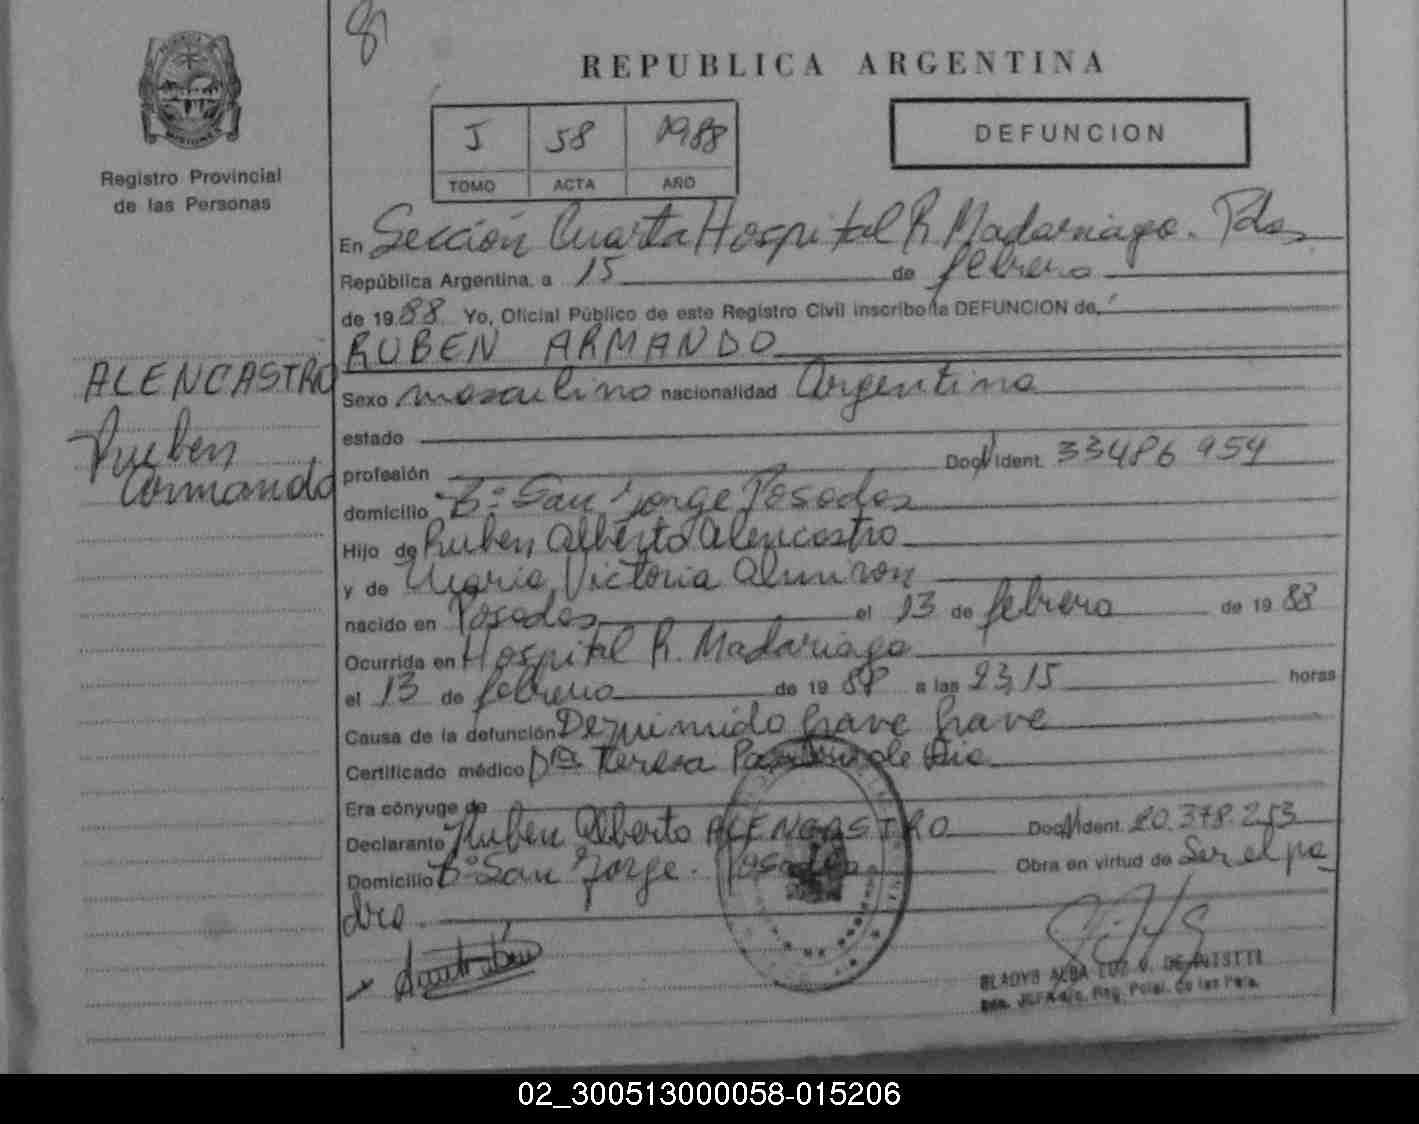 8
REPUBLICA ARGENTINA
J 58 1988
TOMO ACTA AÑO
DEFUNCION
Registro Provincial
de las Personas
En Sección Cuarta Hospital R. Madariaga. Pdas
República Argentina, a 15 de febrero
de 1988 Yo, Oficial Público de este Registro Civil inscribo la DEFUNCION de,
RUBEN ARMANDO
ALENCASTRO
Ruben
Armando
Sexo masculino nacionalidad Argentina
estado
profesión Doc. Ident. 33486 954
domicilio B° San Jorge Posadas
Hijo de Ruben Alberto Alencastro
y de Maria Victoria Almiron
nacido en Posadas el 13 de febrero de 1988
Ocurrida en Hospital R. Madariaga
el 13 de febrero de 1988 a las 23,15 horas
Causa de la defunción Deprimido Grave Grave
Certificado médico Dra Teresa
Era cónyuge de
Declarante Ruben Alberto ALENCASTRO Doc. Ident. 20.378.253
Domicilio B° San Jorge. Posadas Obra en virtud de Ser el pa
dre.
GLADYS ALBA LUZ V. DE
02_300513000058-015206